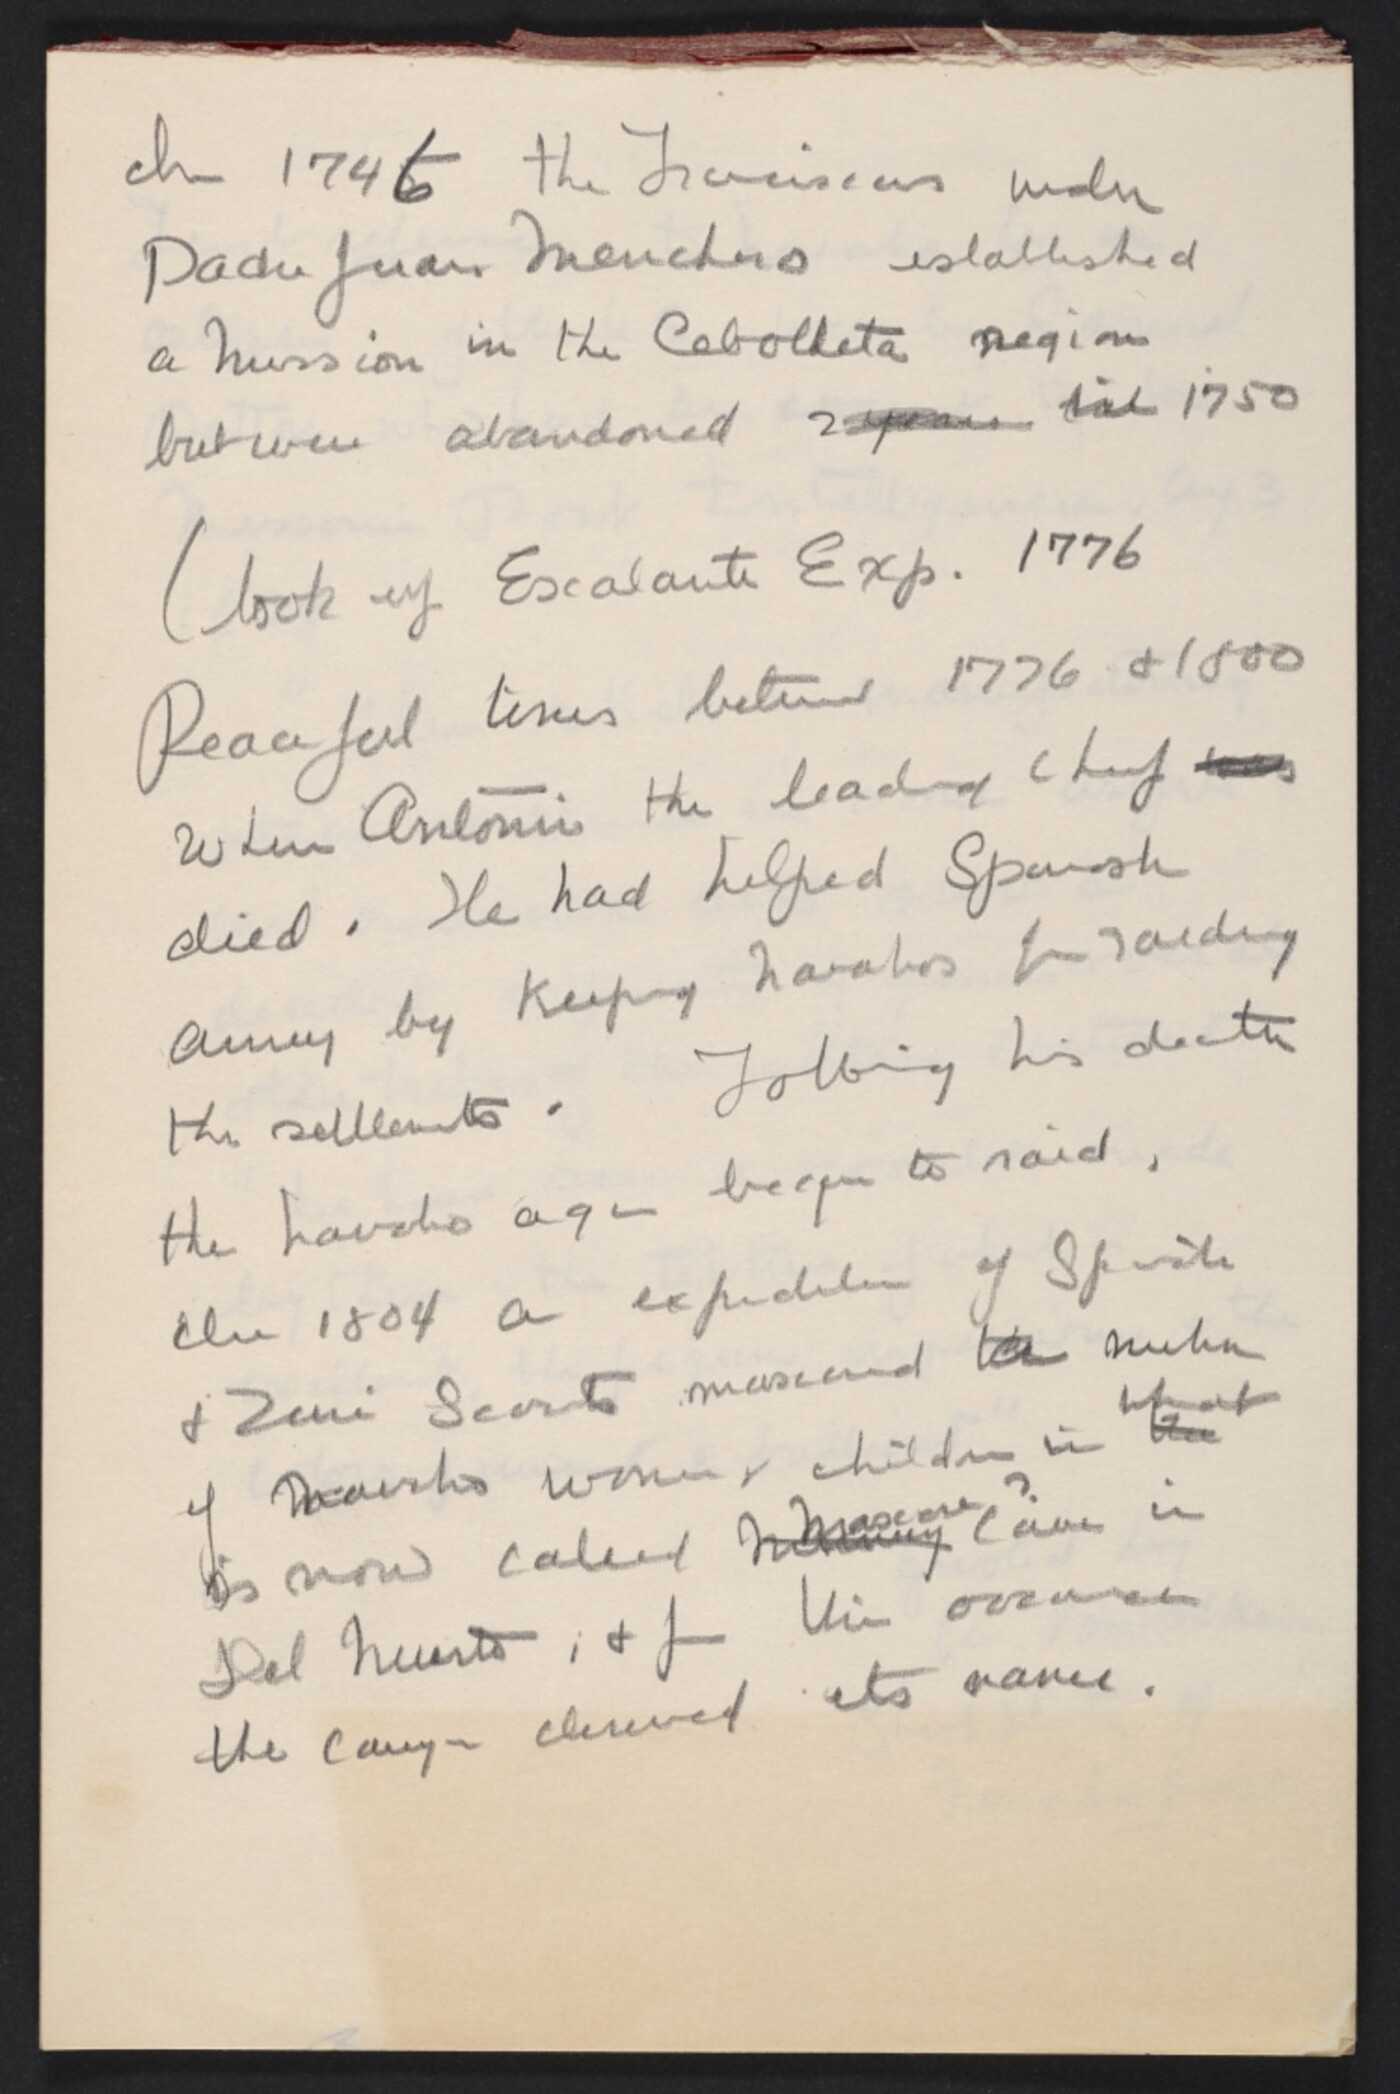 In 1746 the Franciscans under
Padre Juan Menchero established
a Mission in the Cebolleta region
but were abandoned 2 years in 1750
(look up Escalante Exp. 1776
Peaceful times between 1776 & 1800
when Antonio the leading chief was
died. He had helped Spanish
army by keeping Navahos from raiding
the settlements. Following his death
the Navaho again began to raid.
In 1804 an expedition of Spanish
& Zuni Scouts massacred the number
of Navaho women & children in the what
is now called Mummy Massacre? Cave in
Del Muerto; & from this occurance
the canyon derived its name.